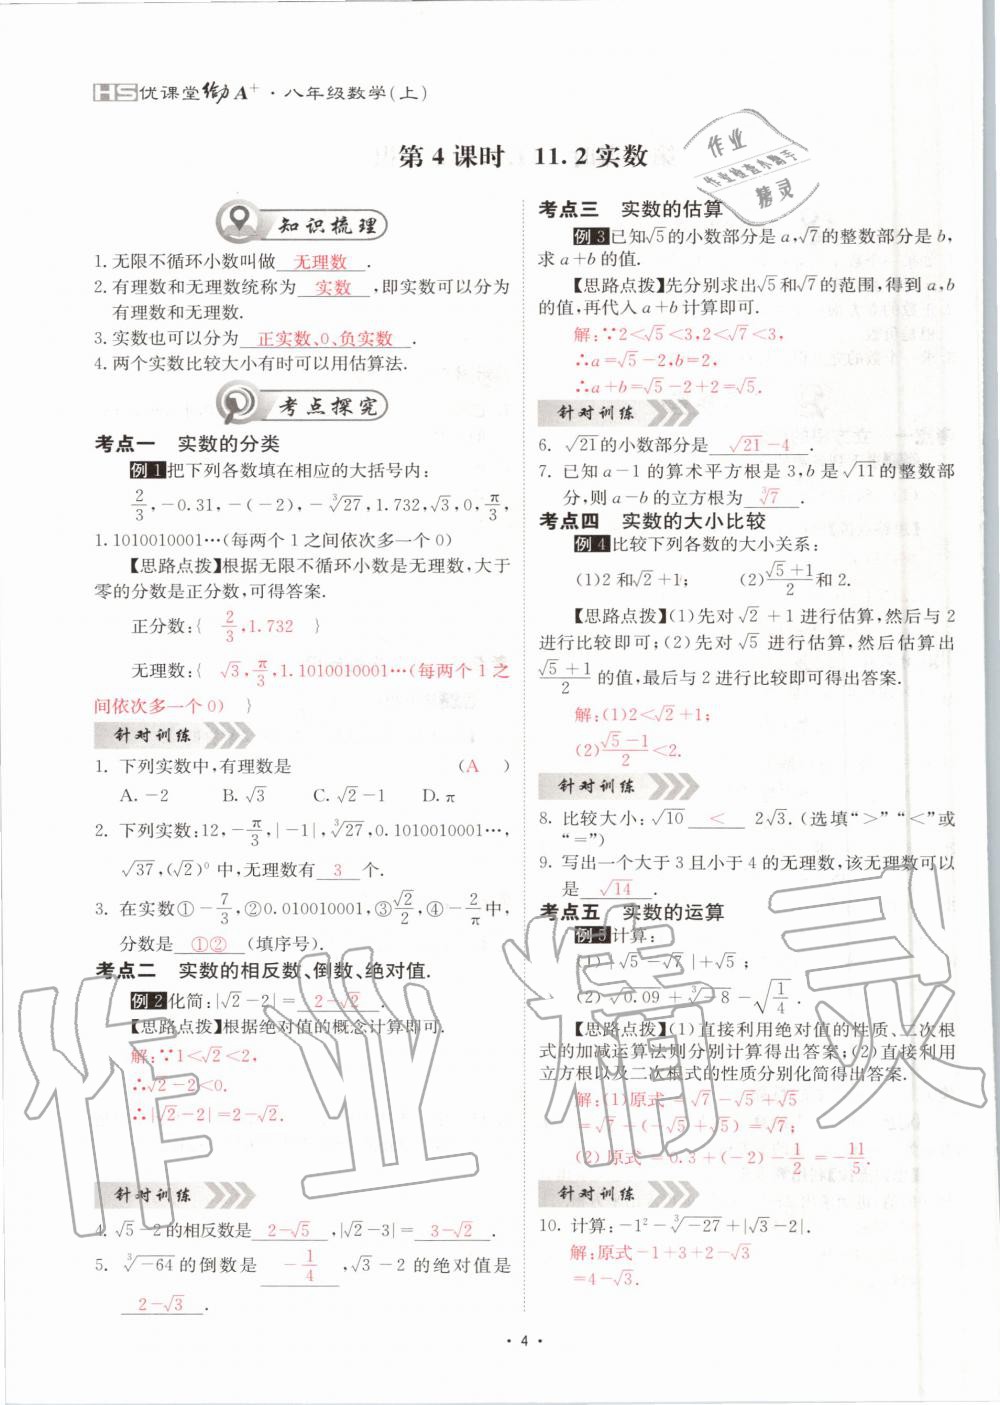 HS优课堂给力A⁺·八年级数学(上)
第4课时 11.2实数
知识梳理
1.无限不循环小数叫做 无理数 .
2.有理数和无理数统称为 实数 ,即实数可以分为
有理数和无理数.
3.实数也可以分为 正实数、0、负实数 .
4.两个实数比较大小有时可以用估算法.
考点探究
考点一 实数的分类
例1 把下列各数填在相应的大括号内:
2/3,-0.31,-(-2),-∛27,1.732,√3,0,π/3,
1.1010010001…(每两个1之间依次多一个0)
【思路点拨】根据无限不循环小数是无理数,大于
零的分数是正分数,可得答案.
正分数:{ 2/3,1.732 }
无理数:{ √3,π/3,1.1010010001…(每两个1之
间依次多一个0) }
针对训练
1. 下列实数中,有理数是 (A)
A.-2 B.√3 C.√2-1 D.π
2. 下列实数:12,-π/3,|-1|,∛27,0.1010010001…,
√37,(√2)⁰中,无理数有 3 个.
3. 在实数①-7/3,②0.010010001,③√2/2,④-2/π中,
分数是 ①② (填序号).
考点二 实数的相反数、倒数、绝对值.
例2 化简:|√2-2|= 2-√2 .
【思路点拨】根据绝对值的概念计算即可.
解:∵1<√2<2,
∴√2-2<0.
∴|√2-2|=2-√2.
针对训练
4. √5-2的相反数是 2-√5 ,|√2-3|= 3-√2 .
5. ∛-64的倒数是 -1/4 ,√3-2的绝对值是
2-√3 .
考点三 实数的估算
例3 已知√5的小数部分是a,√7的整数部分是b,
求a+b的值.
【思路点拨】先分别求出√5和√7的范围,得到a,b
的值,再代入a+b计算即可.
解:∵2<√5<3,2<√7<3,
∴a=√5-2,b=2,
∴a+b=√5-2+2=√5.
针对训练
6. √21的小数部分是 √21-4 .
7. 已知a-1的算术平方根是3,b是√11的整数部
分,则a-b的立方根为 ∛7 .
考点四 实数的大小比较
例4 比较下列各数的大小关系:
(1)2和√2+1; (2)(√5+1)/2和2.
【思路点拨】(1)先对√2+1进行估算,然后与2
进行比较即可;(2)先对√5进行估算,然后估算出
(√5+1)/2的值,最后与2进行比较即可得出答案.
解:(1)2<√2+1;
(2)(√5-1)/2<2.
针对训练
8. 比较大小:√10 < 2√3.(选填“>”“<”或
“=”)
9. 写出一个大于3且小于4的无理数,该无理数可以
是 √14 .
考点五 实数的运算
例5 计算:
(1)|√5-√7|+√5;
(2)√0.09+∛-8-√(1/4).
【思路点拨】(1)直接利用绝对值的性质、二次根
式的加减运算法则分别计算得出答案;(2)直接利用
立方根以及二次根式的性质分别化简得出答案.
解:(1)原式=√7-√5+√5
=√7-(-√5+√5)=√7;
(2)原式=0.3+(-2)-1/2=-11/5.
针对训练
10. 计算:-1²-∛-27+|√3-2|.
解:原式-1+3+2-√3
=4-√3.
·4·
作业
作业检查小助手
精灵
作业精灵